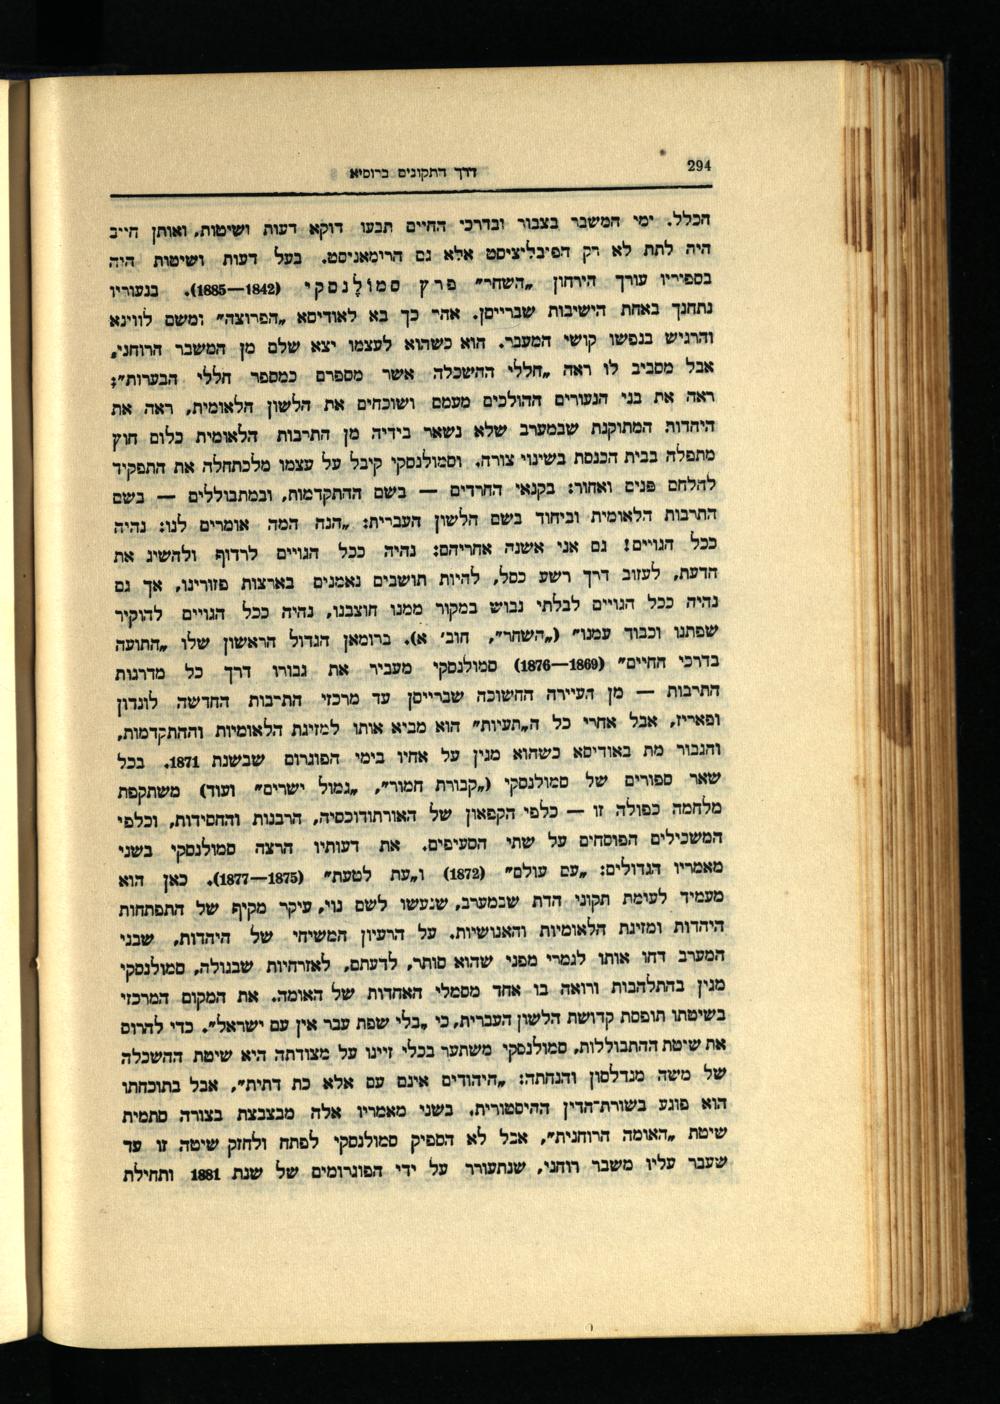 294
דרך התקונים ברוסיא
הכלל. ימי המשבר בצבור ובדרכי החיים תבעו דוקא דעות ושיטות, ואותן חייב
היה לתת לא רק הפיבליציסט אלא גם הרימאניסט. בעל דעות ושיטות היה
בספיריו עורך הירחון „השחר” פרץ סמולנסקי (1842—1885). בנעוריו
נתחנך באחת הישיבות שברייסן. אחר כך בא לאודיסא „הפרוצה” ומשם לווינא
והרגיש בנפשו קושי המעבר. הוא כשהוא לעצמו יצא שלם מן המשבר הרוחני,
אבל מסביב לו ראה „חללי ההשכלה אשר מספרם כמספר חללי הבערות”;
ראה את בני הנעורים ההולכים מעמם ושוכחים את הלשון הלאומית, ראה את
היהדות המתוקנת שבמערב שלא נשאר בידיה מן התרבות הלאומית כלום חוץ
מתפלה בבית הכנסת בשינוי צורה. וסמולנסקי קיבל על עצמו מלכתחלה את התפקיד
להלחם פנים ואחור: בקנאי החרדים — בשם ההתקדמות, ובמתבוללים — בשם
התרבות הלאומית וביחוד בשם הלשון העברית: „הנה המה אומרים לנו: נהיה
ככל הגויים! גם אני אשנה אחריהם: נהיה ככל הגויים לרדוף ולהשיג את
הדעת, לעזוב דרך רשע כסל, להיות תושבים נאמנים בארצות פזורינו, אך גם
נהיה ככל הגויים לבלתי נבוש במקור ממנו חוצבנו, נהיה ככל הגויים להוקיר
שפתנו וכבוד עמנו” („השחר”, חוב׳ א). ברומאן הגדול הראשון שלו „התועה
בדרכי החיים” (1869—1876) סמולנסקי מעביר את גבורו דרך כל מדרגות
התרבות — מן העיירה החשוכה שברייסן עד מרכזי התרבות החדשה לונדון
ופאריז, אבל אחרי כל ה„תעיות” הוא מביא אותו למזיגת הלאומיות וההתקדמות,
והגבור מת באודיסא כשהוא מגין על אחיו בימי הפוגרום שבשנת 1871. בכל
שאר ספורים של סמולנסקי („קבורת חמור”, „גמול ישרים” ועוד) משתקפת
מלחמה כפולה זו — כלפי הקפאון של האורתודוכסיה, הרבנות והחסידות, וכלפי
המשכילים הפוסחים על שתי הסעיפים. את דעותיו הרצה סמולנסקי בשני
מאמריו הגדולים: „עם עולם” (1872) ו„עת לטעת” (1875—1877). כאן הוא
מעמיד לעימת תקוני הדת שבמערב, שנעשו לשם נוי, עיקר מקיף של התפתחות
היהדות ומזיגת הלאומיות והאנושיות. על הרעיון המשיחי של היהדות, שבני
המערב דחו אותו לגמרי מפני שהוא סותר, לדעתם, לאזרחיות שבגולה, סמולנסקי
מגין בהתלהבות ורואה בו אחד מסמלי האחדות של האומה. את המקום המרכזי
בשיטתו תופסת קדושת הלשון העברית, כי „בלי שפת עבר אין עם ישראל”. כדי להרוס
את שיטת ההתבוללות, סמולנסקי משתער בכלי זיינו על מצודתה היא שיטת ההשכלה
של משה מנדלסון והנחתה: „היהודים אינם עם אלא כת דתית”, אבל בתוכחתו
הוא פוגע בשורת־הדין ההיסטורית. בשני מאמריו אלה מבצבצת בצורה סתמית
שיטת „האומה הרוחנית”, אבל לא הספיק סמולנסקי לפתח ולחזק שיטה זו עד
שעבר עליו משבר רוחני, שנתעורר על ידי הפוגרומים של שנת 1881 ותחילת